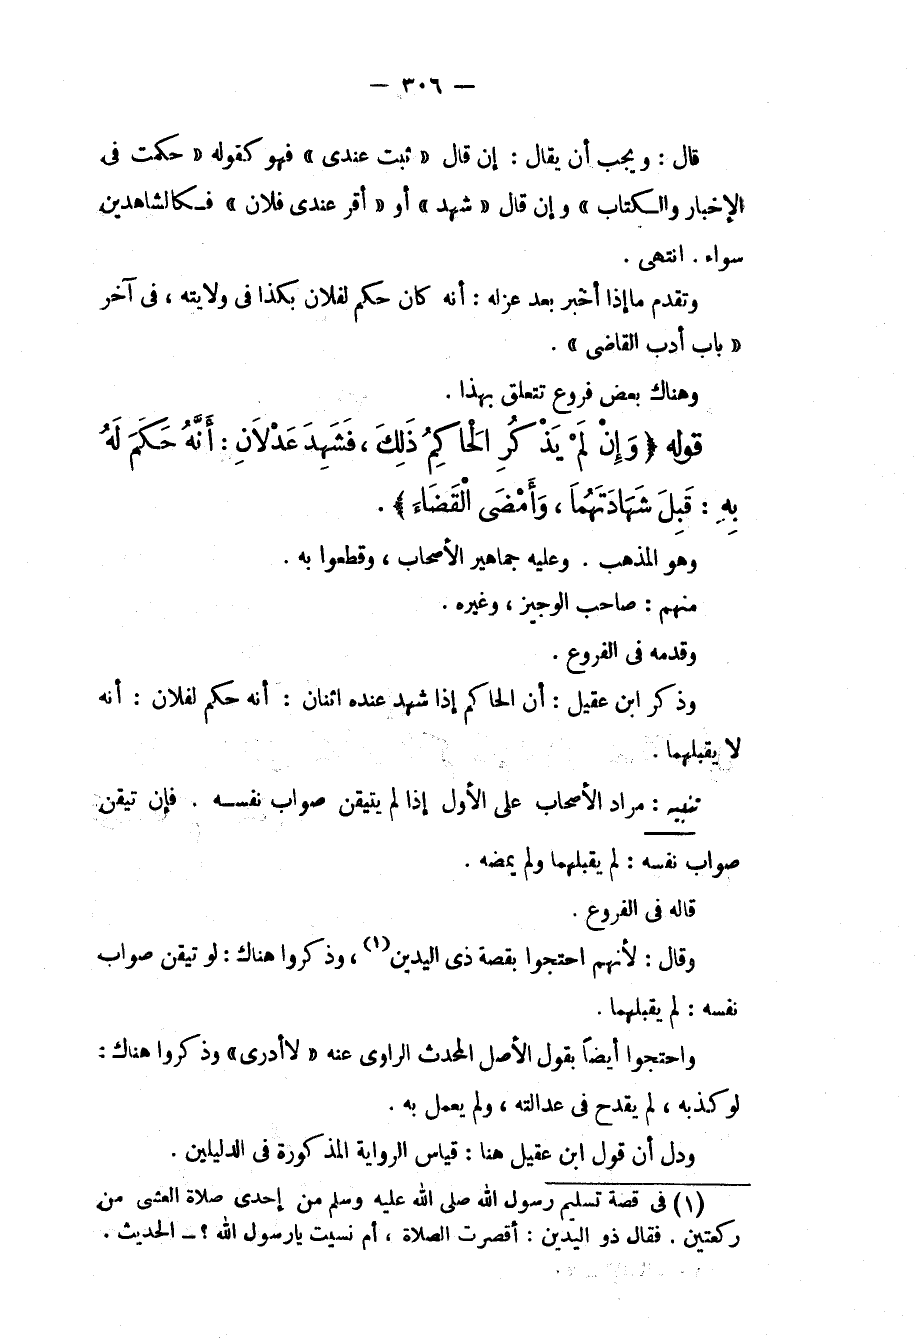 — ٣٠٦ —
قال : ويجب أن يقال : إن قال « ثبت عندى » فهو كقوله « حكمت فى
الإخبار والكتاب » وإن قال « شهد » أو « أقر عندى فلان » فكالشاهدين
سواء . انتهى .
وتقدم ماإذا أخبر بعد عزله : أنه كان حكم لفلان بكذا فى ولايته ، فى آخر
« باب أدب القاضى » .
وهناك بعض فروع تتعلق بهذا .
قوله ﴿ وَإِنْ لَمْ يَذْكُرِ الحَاكِمُ ذَلِكَ ، فَشَهِدَ عَدْلاَنِ : أَنَّهُ حَكَمَ لَهُ
بِهِ : قَبِلَ شَهَادَتَهُمَا ، وَأَمْضَى الْقَضَاءَ ﴾ .
وهو المذهب . وعليه جماهير الأصحاب ، وقطعوا به .
منهم : صاحب الوجيز ، وغيره .
وقدمه فى الفروع .
وذكر ابن عقيل : أن الحاكم إذا شهد عنده اثنان : أنه حكم لفلان : أنه
لا يقبلهما .
تنبيه : مراد الأصحاب على الأول إذا لم يتيقن صواب نفسه . فإن تيقن
صواب نفسه : لم يقبلهما ولم يمضه .
قاله فى الفروع .
وقال : لأنهم احتجوا بقصة ذى اليدين(١) ، وذكروا هناك : لو تيقن صواب
نفسه : لم يقبلهما .
واحتجوا أيضاً بقول الأصل المحدث الراوى عنه « لاأدرى » وذكروا هناك :
لو كذبه ، لم يقدح فى عدالته ، ولم يعمل به .
ودل أن قول ابن عقيل هنا : قياس الرواية المذكورة فى الدليلين .
(١) فى قصة تسليم رسول الله صلى الله عليه وسلم من إحدى صلاة العشى من
ركعتين . فقال ذو اليدين : أقصرت الصلاة ، أم نسيت يارسول الله ؟ ـ الحديث .